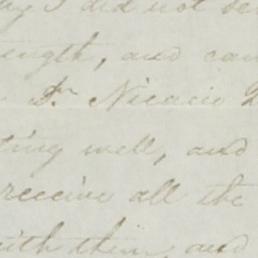 I did not
ength, and can
Dr. Nicacio
ting well, and
receive all the
with them, and